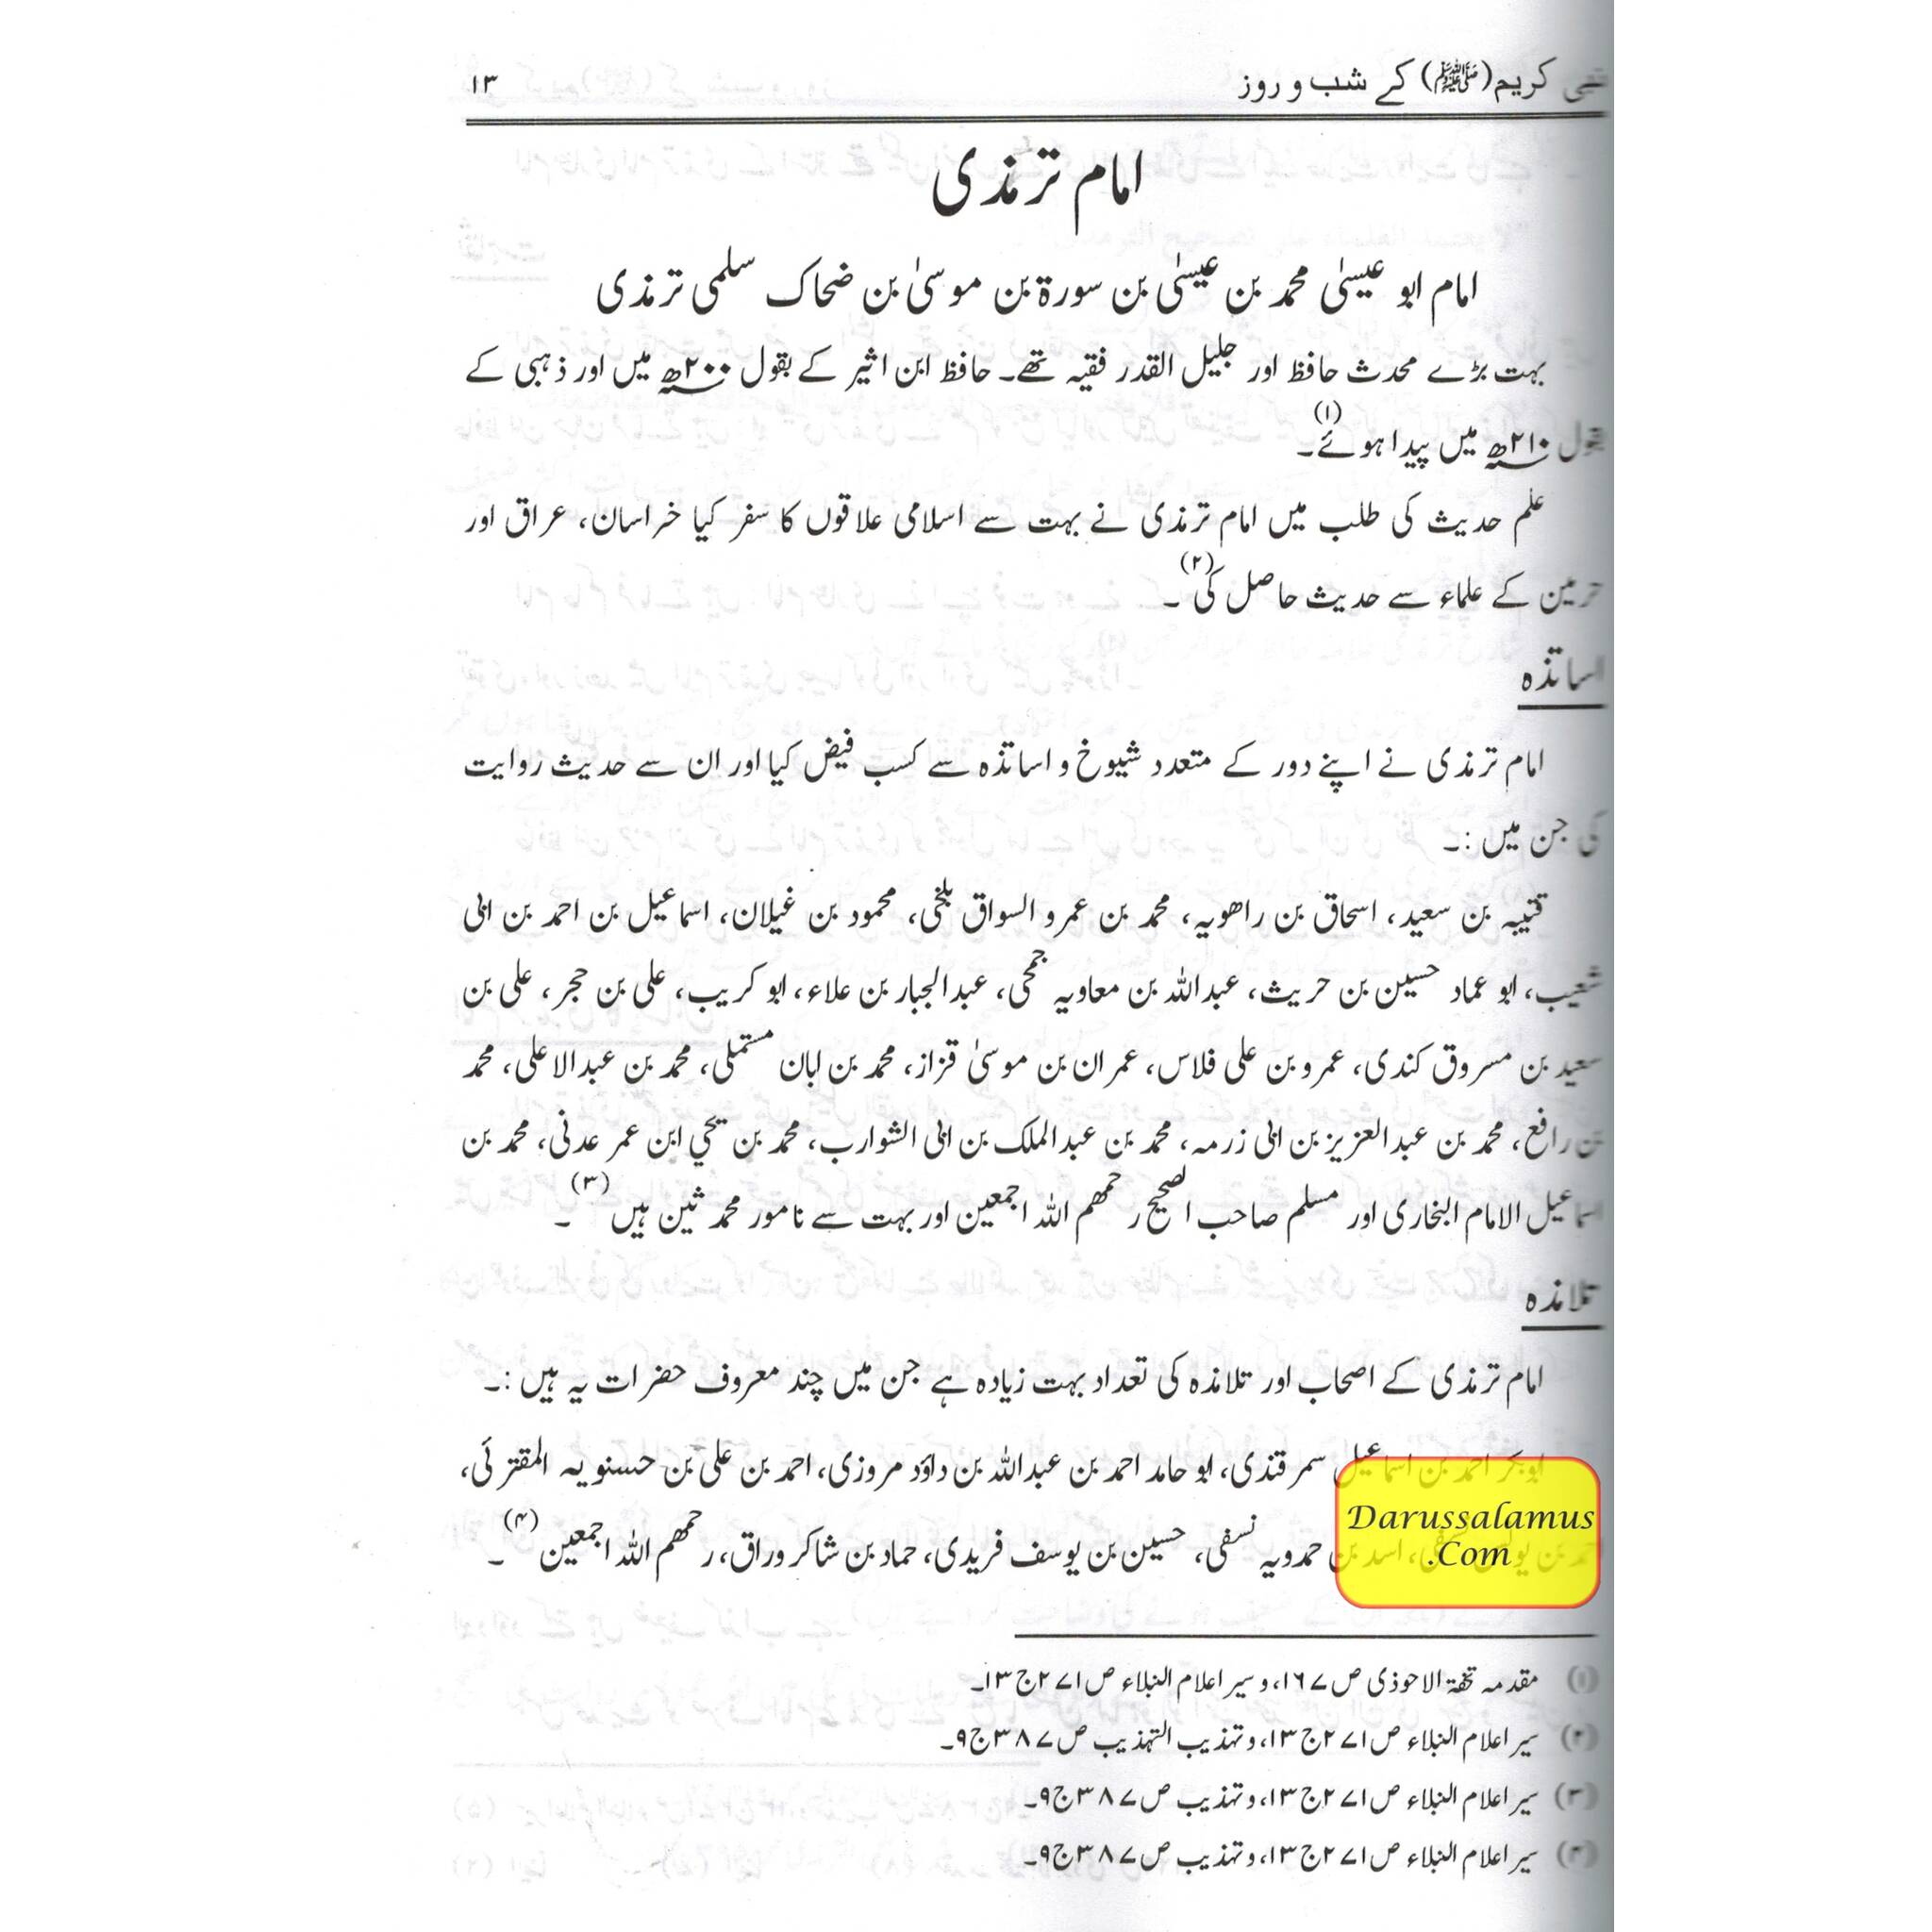 نبی کریم (ﷺ) کے شب و روز ۱۳
امام ترمذی
امام ابو عیسیٰ محمد بن عیسیٰ بن سورة بن موسیٰ بن ضحاک سلمی ترمذی
بہت بڑے محدث حافظ اور جلیل القدر فقیہ تھے۔ حافظ ابن اثیر کے بقول ۲۰۰ھ میں اور ذہبی کے
بقول ۲۱۰ھ میں پیدا ہوئے۔ (۱)
علم حدیث کی طلب میں امام ترمذی نے بہت سے اسلامی علاقوں کا سفر کیا خراسان، عراق اور
حرمین کے علماء سے حدیث حاصل کی (۲)۔
اساتذہ
امام ترمذی نے اپنے دور کے متعدد شیوخ و اساتذہ سے کسب فیض کیا اور ان سے حدیث روایت
کی جن میں :۔
قتیبہ بن سعید، اسحاق بن راھویہ، محمد بن عمرو السواق بلخی، محمود بن غیلان، اسماعیل بن احمد بن ابی
شعیب، ابو عماد حسین بن حریث، عبداللہ بن معاویہ جمحی، عبدالجبار بن علاء، ابو کریب، علی بن حجر، علی بن
سعید بن مسروق کندی، عمرو بن علی فلاس، عمران بن موسیٰ قزاز، محمد بن ابان مستملی، محمد بن عبدالاعلی، محمد
بن رافع، محمد بن عبدالعزیز بن ابی زرمہ، محمد بن عبدالملک بن ابی الشوارب، محمد بن یحیٰ ابن عمر عدنی، محمد بن
اسماعیل الامام البخاری اور مسلم صاحب الصحیح رحمھم اللہ اجمعین اور بہت سے نامور محدثین ہیں (۳)۔
تلامذہ
امام ترمذی کے اصحاب اور تلامذہ کی تعداد بہت زیادہ ہے جن میں چند معروف حضرات یہ ہیں :۔
ابوبکر احمد بن اسماعیل سمرقندی، ابو حامد احمد بن عبداللہ بن داؤد مروزی، احمد بن علی بن حسنویہ المقترئی،
احمد بن یوسف نسفی، اسد بن حمدویہ نسفی، حسین بن یوسف فریدی، حماد بن شاکر وراق، رحمھم اللہ اجمعین (۴)۔
Darussalamus
.Com
(۱) مقدمہ تحفۃ الاحوذی ص ۱۶۷، و سیر اعلام النبلاء ص ۲۷۱ ج ۱۳۔
(۲) سیر اعلام النبلاء ص ۲۷۱ ج ۱۳، و تہذیب التہذیب ص ۳۸۷ ج ۹۔
(۳) سیر اعلام النبلاء ص ۲۷۱ ج ۱۳، و تہذیب ص ۳۸۷ ج ۹۔
(۴) سیر اعلام النبلاء ص ۲۷۱ ج ۱۳، و تہذیب ص ۳۸۷ ج ۹۔